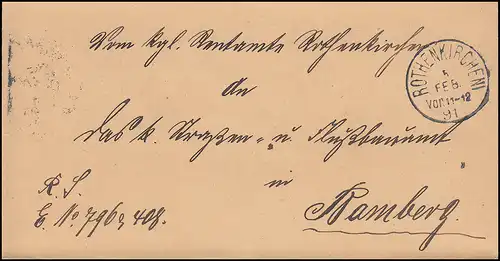 Vom kgl. Rentamte Rothenkirchen
An
das k. Straßen- u. Flußbauamt
in
Bamberg.
R. S.
E. No 796 408.
ROTHENKIRCHEN
5
FEB.
VOR 11-12
91